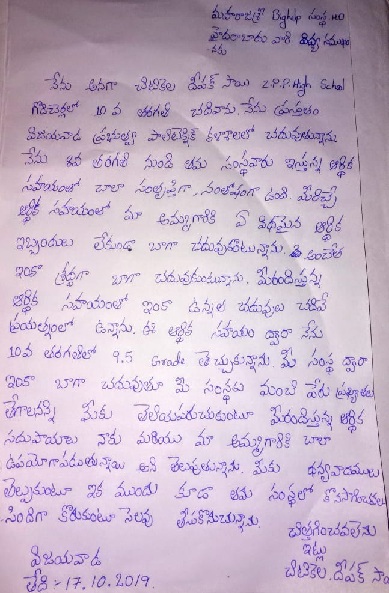 మహారాజశ్రీ BigHelp సంస్థ HO
హైదరాబాదు వారి దివ్య సముఖం
నకు
నేను అనగా చిటికెల దీపక్ సాయి Z.P.P.High School
గొడిచర్లలో 10 వ తరగతి చదివాను. నేను ప్రస్తుతం
విజయవాడ ప్రభుత్వ పాలిటెక్నిక్ కళాశాలలో చదువుతున్నాను.
నేను 8వ తరగతి నుండి తమ సంస్థవారు ఇస్తున్న ఆర్థిక
సహాయంతో చాలా సంతృప్తిగా, సంతోషంగా ఉంది. మీరిచ్చే
ఆర్థిక సహాయంలో మా అమ్మగారికి ఏ విధమైన ఆర్థిక
ఇబ్బందులు లేకుండా బాగా చదువుకుంటున్నాను.
ఇంకా శ్రద్ధగా బాగా చదువుకుంటున్నాను. మీరందిస్తున్న
ఆర్థిక సహాయంతో ఇంకా ఉన్నత చదువులు చదివే
ప్రయత్నంలో ఉన్నాను. ఈ ఆర్థిక సహాయం ద్వారా నేను
10వ తరగతిలో 9.5 Grade తెచ్చుకున్నాను. మీ సంస్థ ద్వారా
ఇంకా బాగా చదువుతూ మీ సంస్థకు మంచి పేరు ప్రఖ్యాతులు
తేగాలనని మీకు తెలియపరుచుకుంటూ మీరందిస్తున్న ఆర్థిక
సదుపాయాలు నాకు మరియు మా అమ్మగారికి చాలా
ఉపయోగపడుతున్నాయి అని తెలుపుతున్నాను. మీకు ధన్యవాదములు
తెల్పుకుంటూ ఇక ముందు కూడా తమ సంస్థలో కొనసాగించవల
సిందిగా కోరుకుంటూ సెలవు తీసుకొనుచున్నాను.
చిత్తగించవలెను
ఇట్లు
విజయవాడ
చిటికెల. దీపక్ సా
తేది :- 17.10.2019.